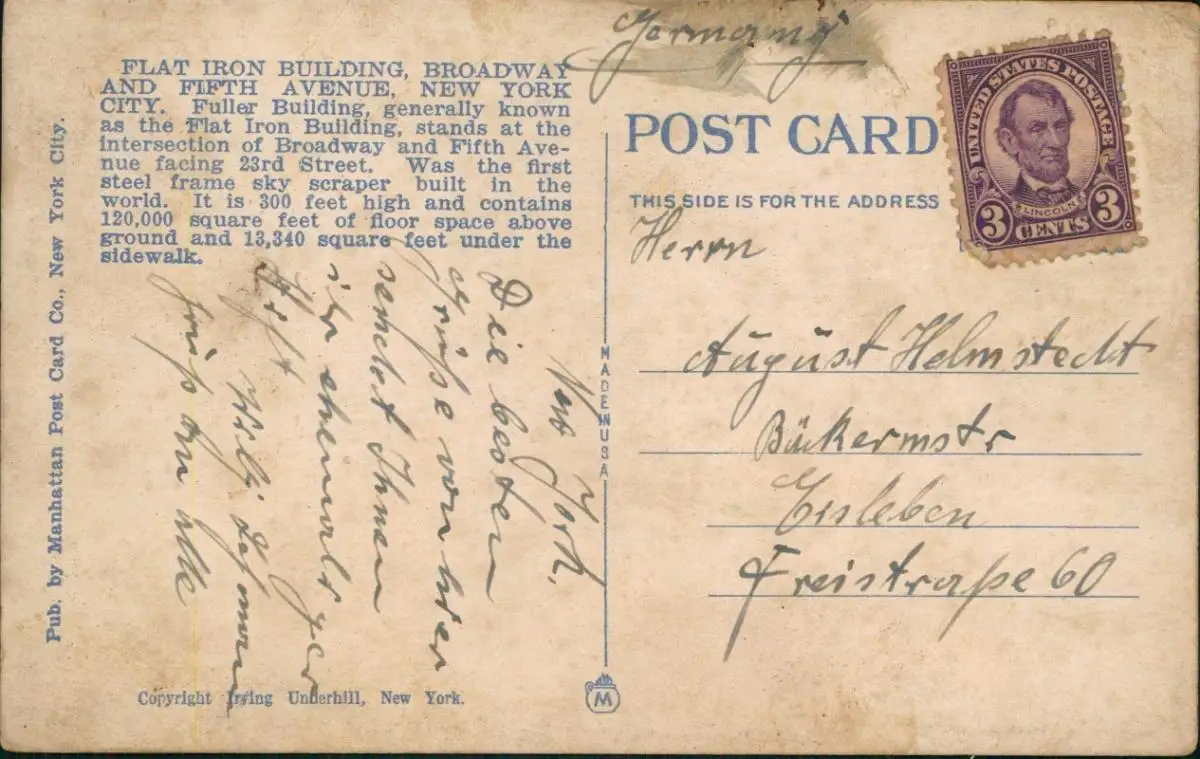 Germany
FLAT IRON BUILDING, BROADWAY
AND FIFTH AVENUE, NEW YORK
CITY. Fuller Building, generally known
as the Flat Iron Building, stands at the
intersection of Broadway and Fifth Ave-
nue facing 23rd Street. Was the first
steel frame sky scraper built in the
world. It is 300 feet high and contains
120,000 square feet of floor space above
ground and 13,340 square feet under the
sidewalk.
Pub. by Manhattan Post Card Co., New York City.
New York.
Die besten
Grüße von hier
sendet Ihnen
ihr ehemaliger
Willi
an alle
Copyright Irving Underhill, New York.
MADE IN USA
M
POST CARD
THIS SIDE IS FOR THE ADDRESS
UNITED STATES POSTAGE
LINCOLN
3 CENTS 3
Herrn
August Helmstedt
Bäckermstr
Eisleben
Freistraße 60